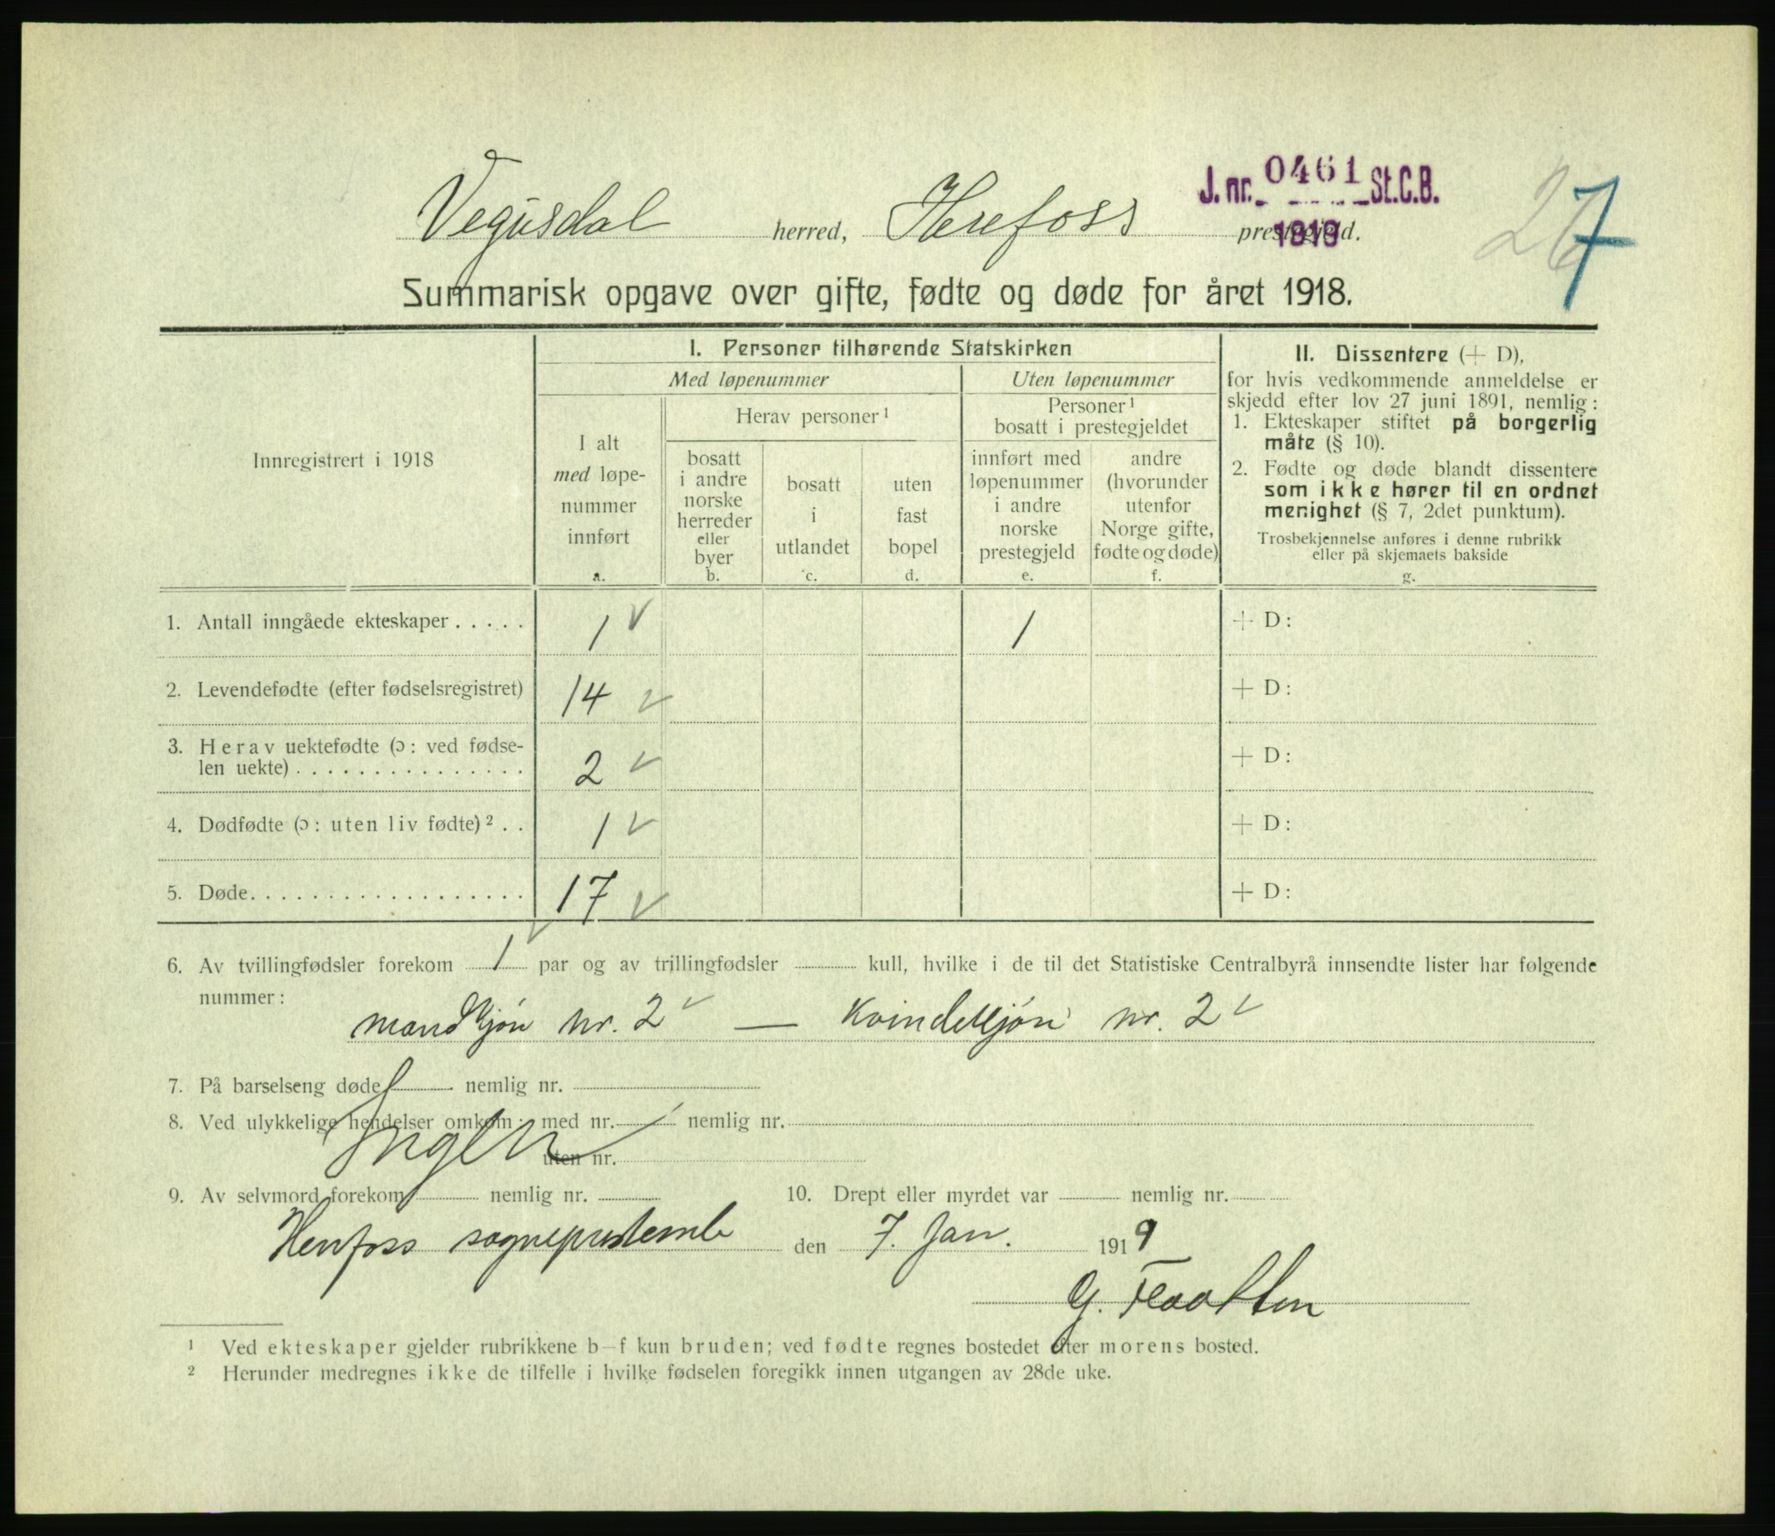 J. nr. 0461 St.C.B.
1919
26
7
Vegusdal herred, Herefoss prestegjeld.
Summarisk opgave over gifte, fødte og døde for året 1918.
Innregistrert i 1918
I. Personer tilhørende Statskirken
Med løpenummer
Uten løpenummer
I alt
med løpe-
nummer
innført
a.
Herav personer 1
bosatt
i andre
norske
herreder
eller
byer
b.
bosatt
i
utlandet
c.
uten
fast
bopel
d.
Personer 1
bosatt i prestegjeldet
innført med
løpenummer
i andre
norske
prestegjeld
e.
andre
(hvorunder
utenfor
Norge gifte,
fødte og døde)
f.
II. Dissentere (+ D),
for hvis vedkommende anmeldelse er
skjedd efter lov 27 juni 1891, nemlig:
1. Ekteskaper stiftet på borgerlig
måte (§ 10).
2. Fødte og døde blandt dissentere
som ikke hører til en ordnet
menighet (§ 7, 2det punktum).
Trosbekjennelse anføres i denne rubrikk
eller på skjemaets bakside
g.
1. Antall inngåede ekteskaper . . . . . 1 1 + D:
2. Levendefødte (efter fødselsregistret) 14 + D:
3. Herav uektefødte (ɔ: ved fødse-
len uekte) . . . . . . . . . . . . . . . 2 + D:
4. Dødfødte (ɔ: uten liv fødte) 2 . . 1 + D:
5. Døde. . . . . . . . . . . . . . . . . . 17 + D:
6. Av tvillingfødsler forekom 1 par og av trillingfødsler kull, hvilke i de til det Statistiske Centralbyrå innsendte lister har følgende
nummer:
mandkjøn nr. 2 — kvindekjøn nr. 2
7. På barselseng døde nemlig nr.
8. Ved ulykkelige hendelser omkom: med nr. nemlig nr.
Ingen
uten nr.
9. Av selvmord forekom nemlig nr. 10. Drept eller myrdet var nemlig nr.
Herefoss sogneprestemb den 7. Jan. 1919
G. Flaatten
1 Ved ekteskaper gjelder rubrikkene b–f kun bruden; ved fødte regnes bostedet efter morens bosted.
2 Herunder medregnes ikke de tilfelle i hvilke fødselen foregikk innen utgangen av 28de uke.